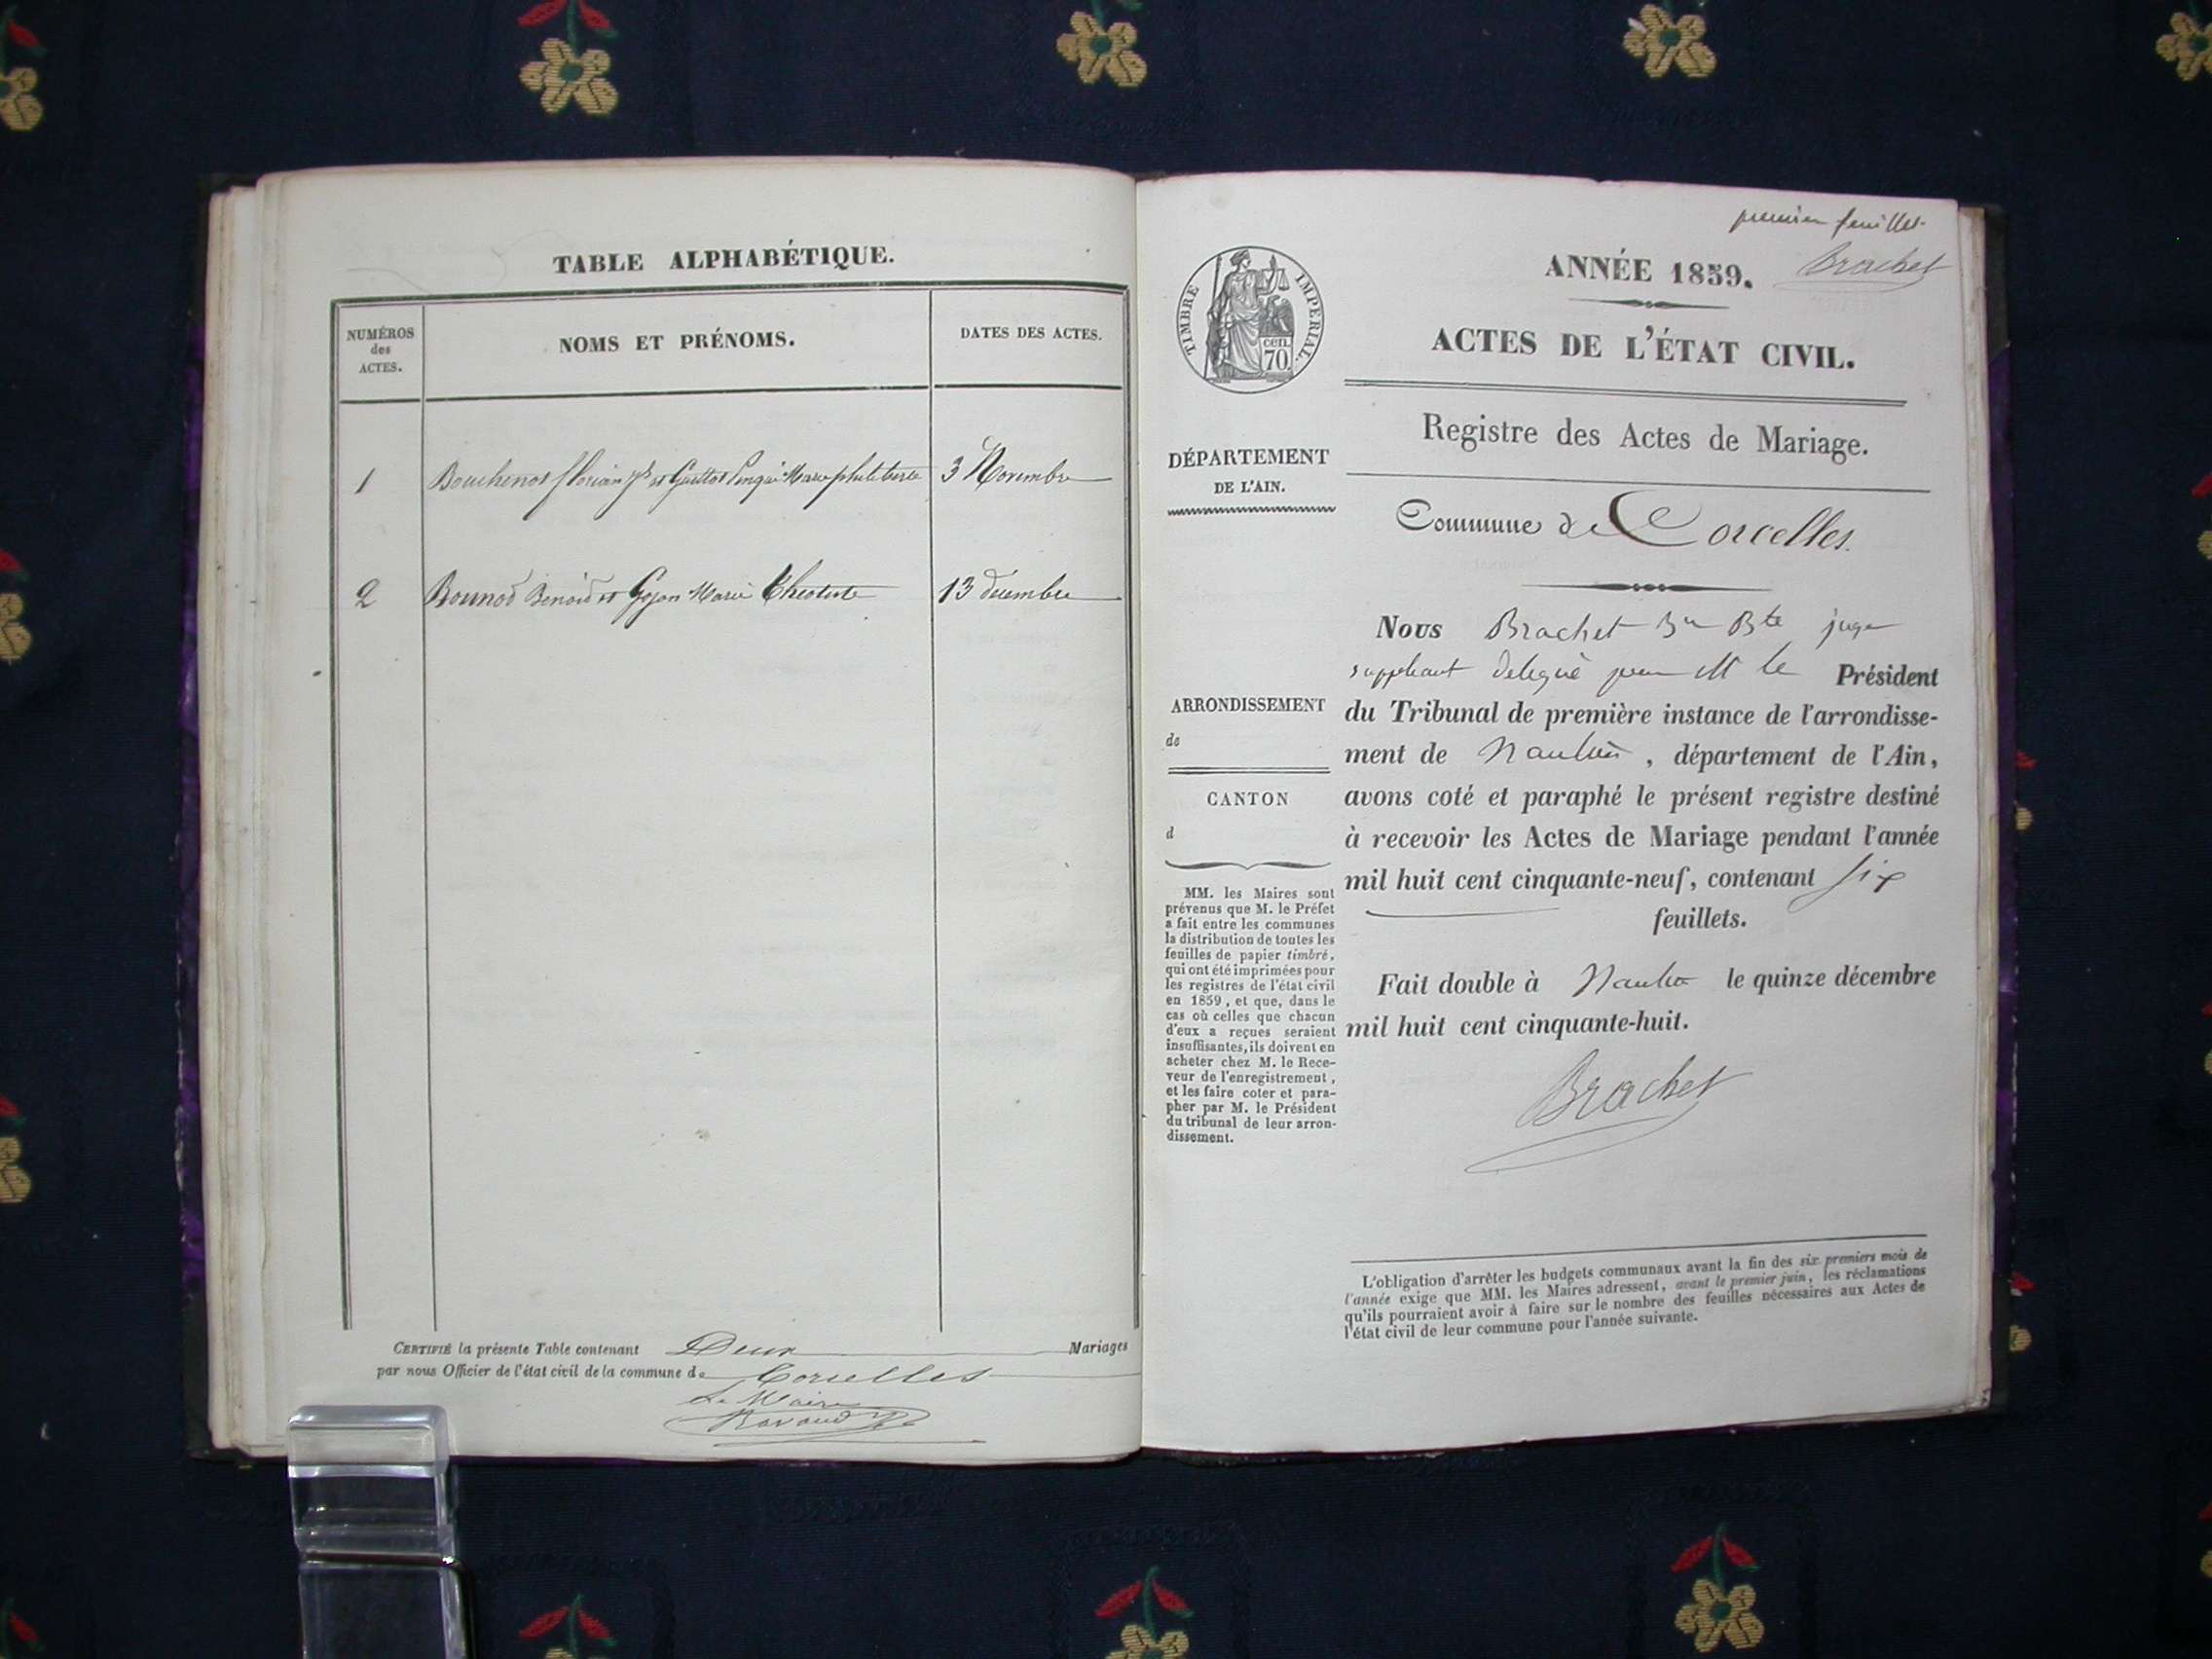 TABLE ALPHABÉTIQUE.
NUMÉROS
des
ACTES.
NOMS ET PRÉNOMS.
DATES DES ACTES.
1 Bouchenot florian et Marie philiberte 3 Novembre
2 Bounod Benoid et Gojon Marie 13 décembre
CERTIFIÉ la présente Table contenant Deux Mariages
par nous Officier de l'état civil de la commune de Corcelles
Le Maire
Ravaud
premier feuillet.
Brachet
TIMBRE IMPÉRIAL.
cen.
70.
ANNÉE 1859.
ACTES DE L'ÉTAT CIVIL.
Registre des Actes de Mariage.
Commune de Corcelles.
DÉPARTEMENT
DE L'AIN.
ARRONDISSEMENT
de
CANTON
d
MM. les Maires sont
prévenus que M. le Préfet
a fait entre les communes
la distribution de toutes les
feuilles de papier timbré,
qui ont été imprimées pour
les registres de l'état civil
en 1859, et que, dans le
cas où celles que chacun
d'eux a reçues seraient
insuffisantes, ils doivent en
acheter chez M. le Rece-
veur de l'enregistrement,
et les faire coter et para-
pher par M. le Président
du tribunal de leur arron-
dissement.
Nous Brachet Bte juge
suppleant delegué par M le Président
du Tribunal de première instance de l'arrondisse-
ment de Nantua, département de l'Ain,
avons coté et paraphé le présent registre destiné
à recevoir les Actes de Mariage pendant l'année
mil huit cent cinquante-neuf, contenant six
feuillets.
Fait double à Nantua le quinze décembre
mil huit cent cinquante-huit.
Brachet
L'obligation d'arrêter les budgets communaux avant la fin des six premiers mois de
l'année exige que MM. les Maires adressent, avant le premier juin, les réclamations
qu'ils pourraient avoir à faire sur le nombre des feuilles nécessaires aux Actes de
l'état civil de leur commune pour l'année suivante.